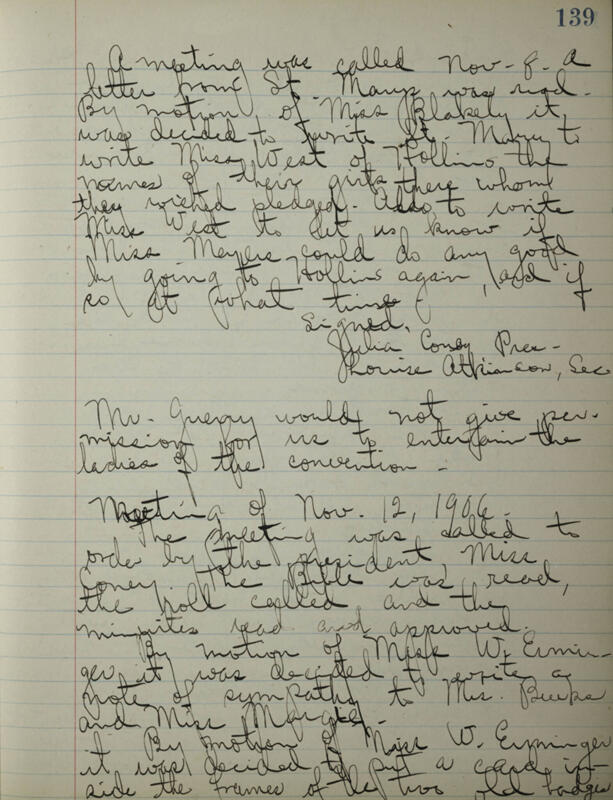 139
A meeting was called Nov-8. a
letter from St. Marys was read.
By motion of Miss Blakely it
was decided to write St. Marys to
write Miss West of Hollins the
names of their girls there whom
they wished pledged. Also, to write
Miss West to let us know if
Miss Meyers could do any good
by going to Hollins again, and if
so at what time
Signed,
Julia Coney Pres-
Louise Atkinson, Sec
Mr. Guerry would not give per-
mission for us to entertain the
ladies of the convention -
Meeting of Nov. 12, 1906.
The meeting was called to
order by the president, Miss
Coney. The Bible was read,
the roll called and the
minutes read and approved.
By motion of Miss W. Ermin-
ger it was decided to write a
note of sympathy to Mrs.
and Miss
By motion of Miss W. Erminger
it was decided to put a card in-
side the frames of the two old badges